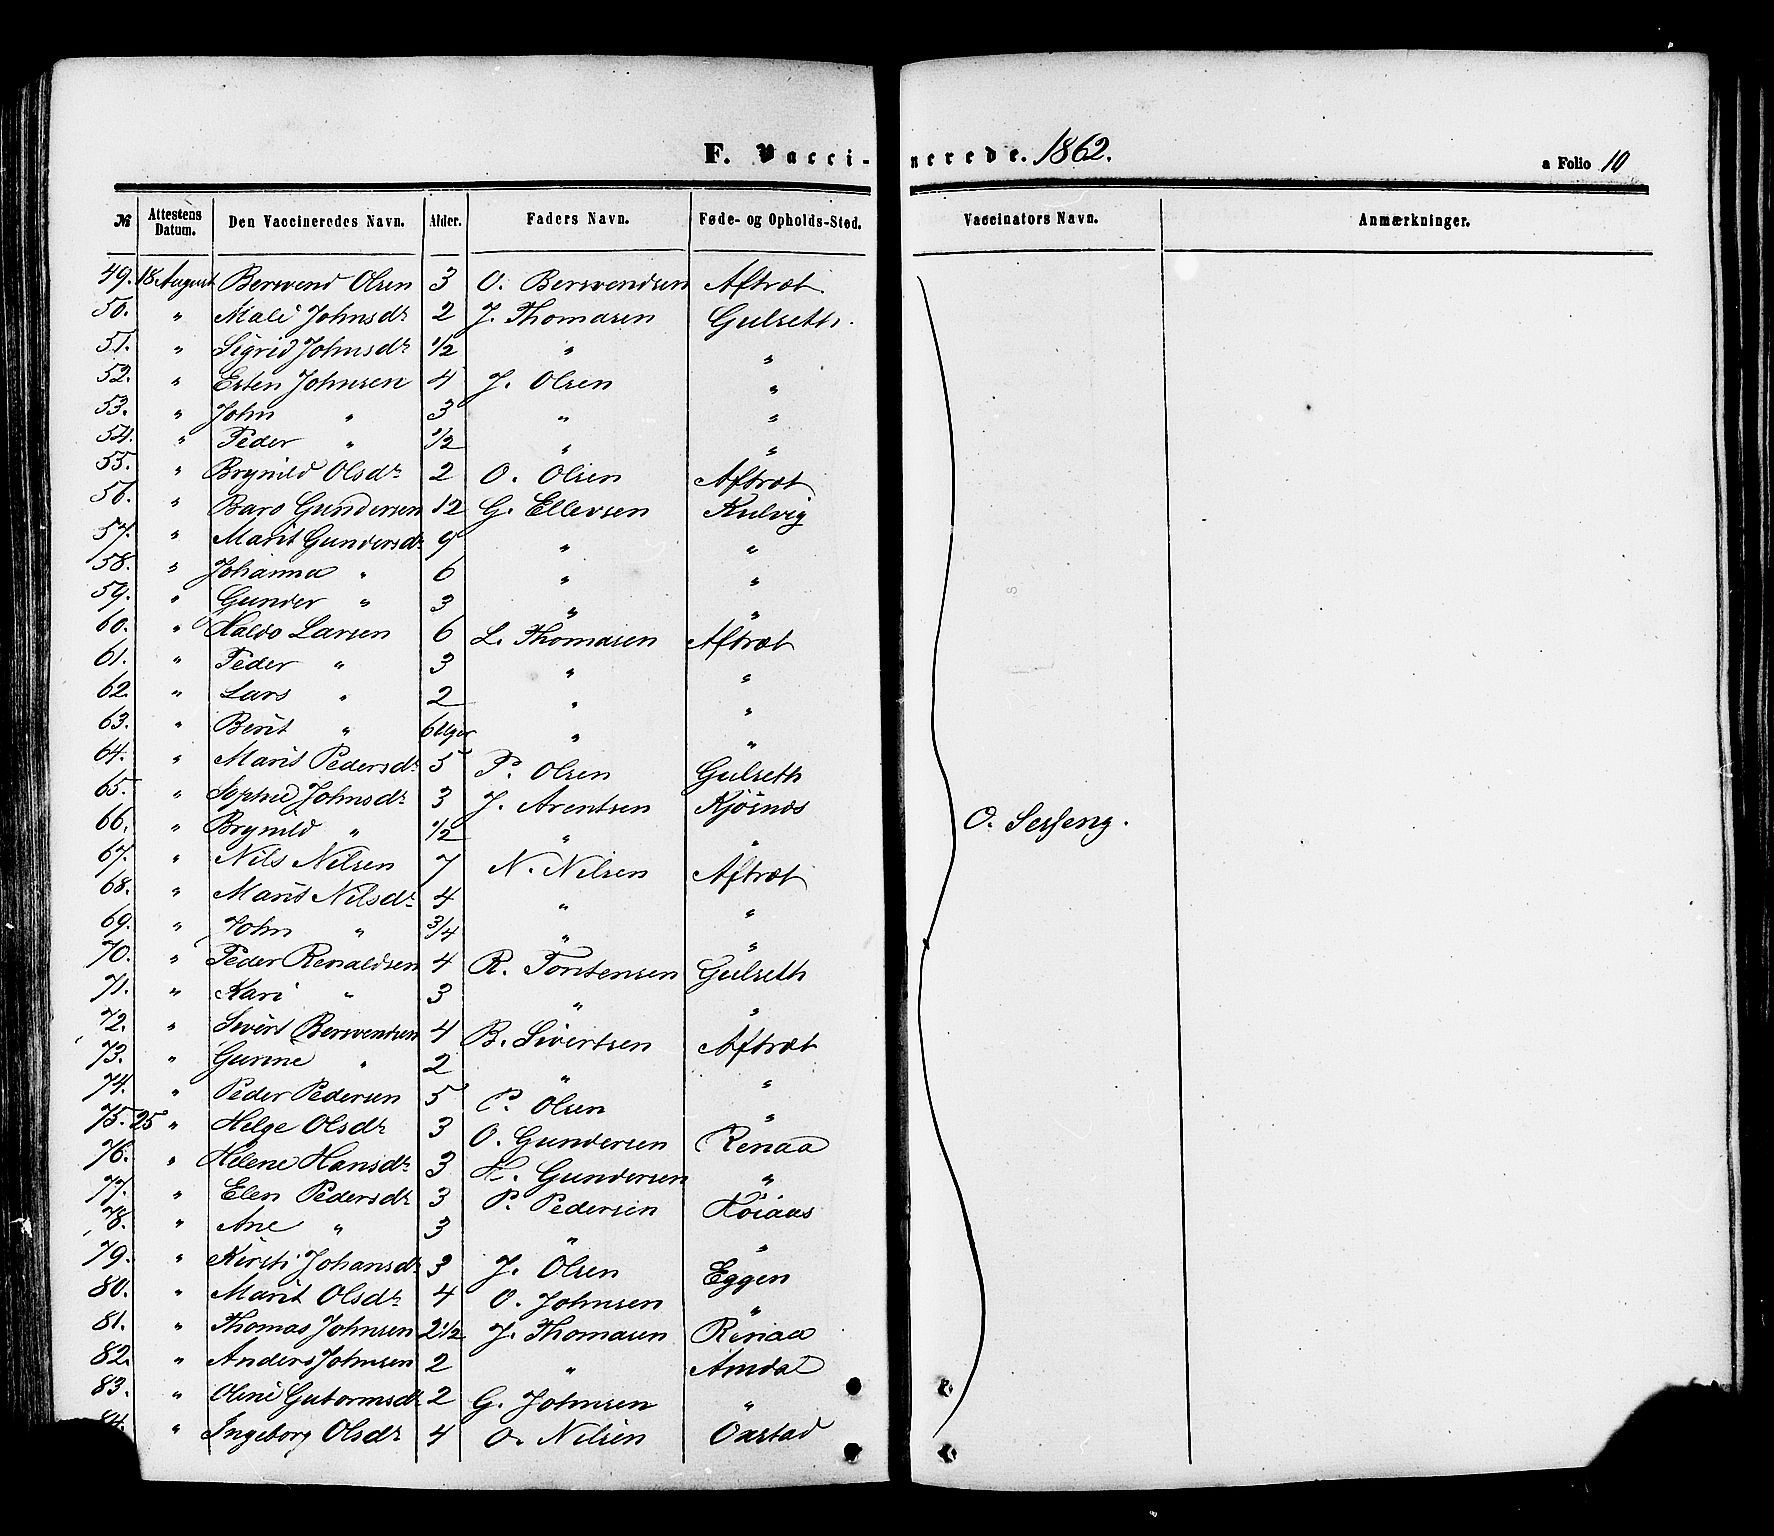 F. Vacci-nerede. 1862. a Folio 10
№ Attestens Datum. Den Vaccineredes Navn. Alder. Faders Navn. Føde- og Opholds-Sted. Vaccinators Navn. Anmærkninger.
49. 18 August Berwend Olsen 3 O. Berwendsen Aftræt
50. " Mali Johnsdr 2 J. Thomasen Gulseth.
51. " Sigrid Johnsdr 1/2 " "
52. " Esten Johnsen 4 J. Olsen "
53. " John " 3 " "
54. " Peder " 1/2 " "
55. " Brynild Olsdr 2 O. Olsen Aftræt
56. " Baro Gundersen 12 G. Ellevsen Kulvig
57. " Marit Gundersdr 9 " "
58. " Johanna " 6 " "
59. " Gunder " 3 " "
60. " Haldo Larsen 6 L. Thomasen Aftræt
61. " Peder " 3 " "
62. " Lars " 2 " "
63. " Berit " 6 Uger " "
64. " Marit Pedersdr 5 P. Olsen Gulseth
65. " Sophie Johnsdr 3 J. Arentsen Kjösnæs
66. " Brynild " 1/2 " " O. Sesseng.
67. " Nils Nilsen 7 N. Nilsen Aftræt
68. " Marit Nilsdr 4 " "
69. " John " 3/4 " "
70. " Peder Renaldsen 4 R. Torstensen Gulseth
71. " Kari " 3 " "
72. " Sivert Berwendsen 4 B. Sivertsen Aftræt
73. " Gunne " 2 " "
74. " Peder Pedersen 5 P. Olsen "
75. 25 " Helge Olsdr 3 O. Gundersen Renaa
76. " Helene Hansdr 3 H. Gundersen "
77. " Elen Pedersdr 3 P. Pedersen Höiaas
78. " Ane " 3 " "
79. " Kirsti Johansdr 3 J. Olsen Eggen
80. " Marit Olsdr 4 O. Johnsen "
81. " Thomas Johnsen 2 1/2 J. Thomasen Renaa
82. " Anders Johnsen 2 " Amdal
83. " Oline Gutormsdr 2 G. Johnsen "
84. " Ingeborg Olsdr 4 O. Nilsen Oxstad